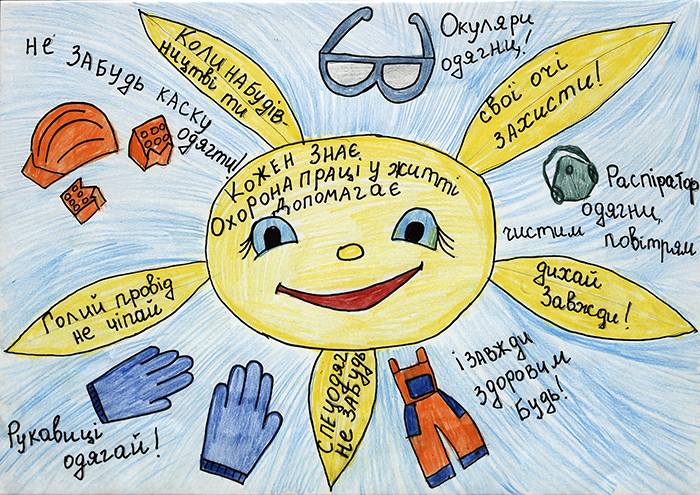 КОЖЕН ЗНАЄ
ОХОРОНА ПРАЦІ У ЖИТТІ
ДОПОМАГАЄ
Коли на будів-
ництві ти
НЕ ЗАБУДЬ КАСКУ
ОДЯГТИ!
Окуляри
одягни,
СВОЇ ОЧІ
ЗАХИСТИ!
Распіратор
одягни,
чистим повітрям
дихай
Завжди!
Голий провід
не чіпай
Рукавиці
одягай!
СПЕЦОДЯГ
НЕ ЗАБУДЬ
І ЗАВЖДИ
ЗДОРОВИМ
БУДЬ!